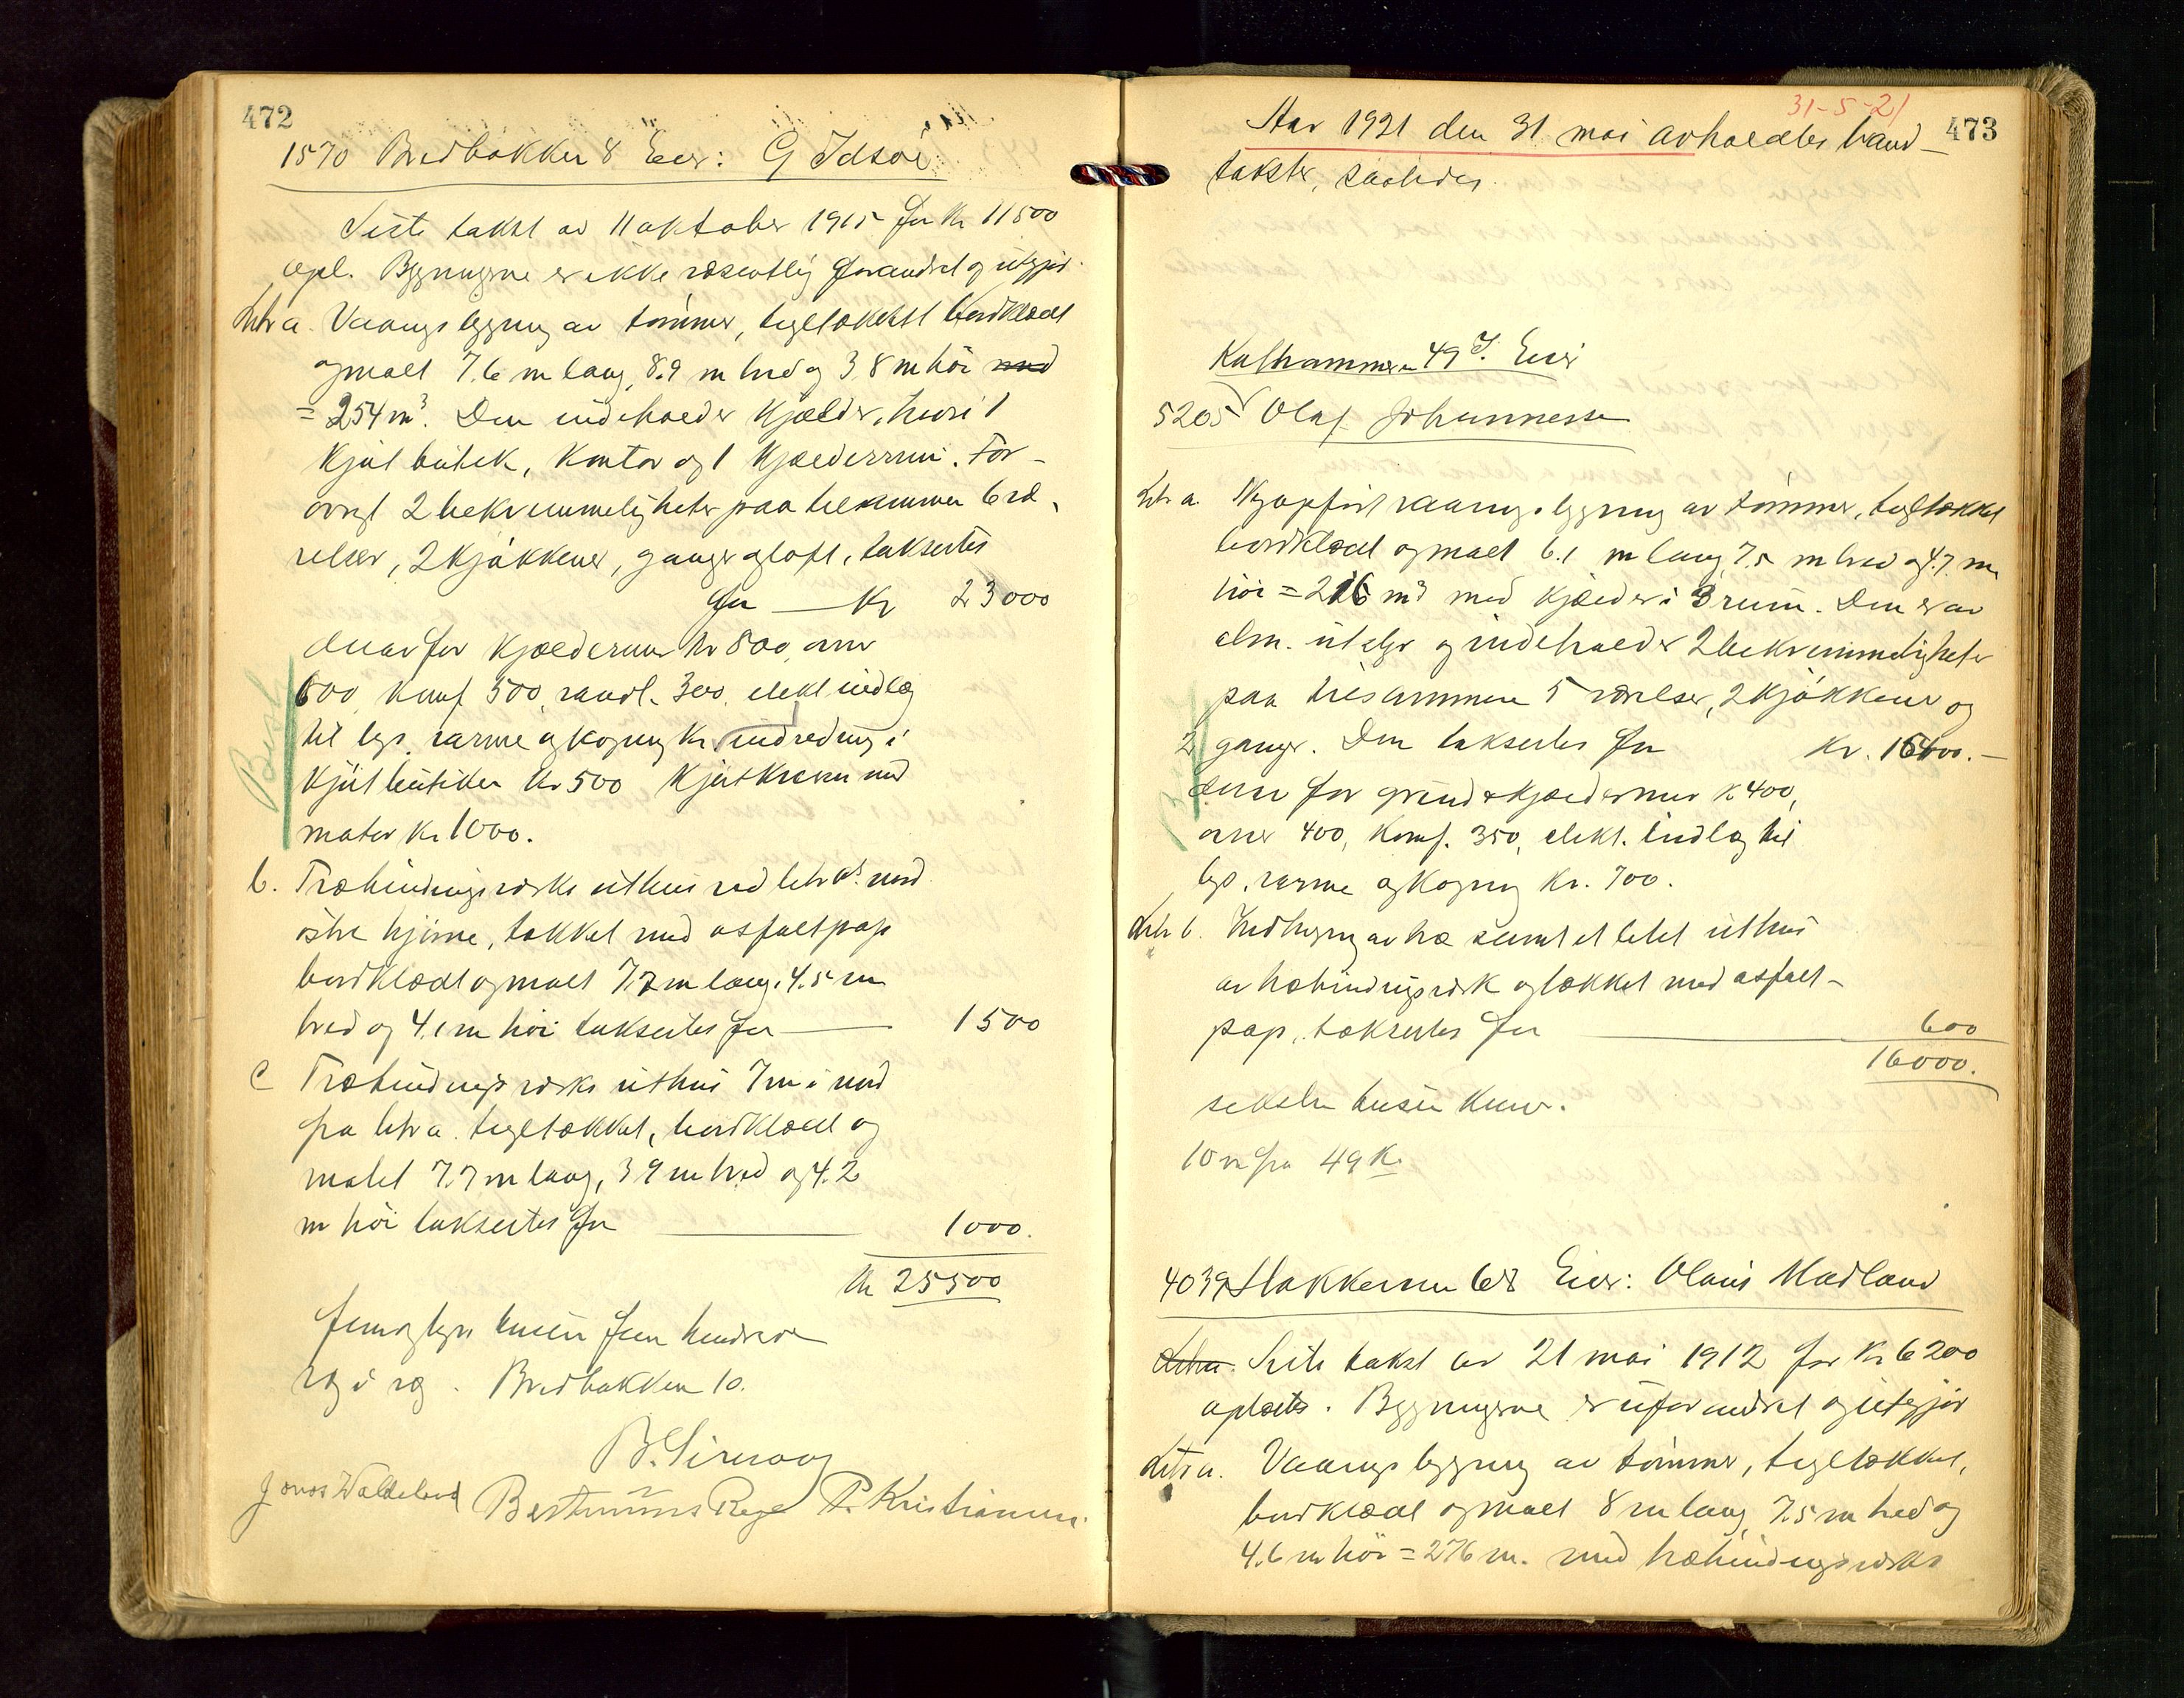 472
1570 Bredbakken 8 Eier: G Idsöe
Siste takst av 11 oktober 1915 for Kr 11500
opl. Bygningerne er ikke væsentlig forandret og utgjör
Litr a. Vaaningsbygning av tömmer, tegltækket bordklædt
og malt 7.6 m lang, 8.9 m bred og 3.8 m höi med
= 254 m³. Den indeholder kjælder, hvori 1
kjötbutik, kontor og 1 kjælderrum. For-
övrigt 2 bekvemmeligheter paa tilsammen 6 væ-
relser, 2 kjökkener, ganger og loft, taksertes
for — Kr 23000
derav for kjældermur kr 800, ovner
600, komf 500, vandl. 300, elekt indlæg
til lys, varme og kogning Kr indredning i
kjötbutiken Kr 500 kjötkværn med
motor Kr 1000.
Best
b. Træbindingsverks uthus ved litr a's nord
östre hjörne, tækket med asfaltpap
bordklædt og malt 7.7 m lang, 4.5 m
bred og 4.1 m höi taksertes for — 1500
c Træbindingsverks uthus 7 m i nord
fra litr a. tegltækket, bordklædt og
malet 7.7 m lang, 3.9 m bred og 4.2
m höi taksertes for — 1000.
Kr 25500
femogtyve tusen fem hundrede
væg i væg. Bredbakken 10.
B. Sirevaag
Jonas Waldeland Bertinius Rege P. Kristiansen.
31-5-21
473
Aar 1921 den 31 mai avholdtes brand-
takster, saaledes.
Kalhammeren 49 J. Eier
5205 Olaf Johannessen
Litr a. Nyopfört vaaningsbygning av tömmer, tegltækket
bordklædt og malt 6.1 m lang 7.5 m bred og 4.7 m
höi = 216 m³ med kjælder i 3 rum. Den er av
alm. utstyr og indeholder 2 bekvemmeligheter
paa tilsammen 5 værelser, 2 kjökkener og
2 ganger. Den taksertes for Kr. 15400.—
derav for grund & kjældermur K 400,
ovner 400, komf. 350, elekt. indlæg til
lys, varme og kogning Kr. 700.
Litr b. Indhegning av træ samt et litet uthus
av træbindingsverk og tækket med asfalt-
pap, taksertes for — 600
16000.
seksten tusen kroner.
10 m fra 49 K.
4039 Stokkeveien 68 Eier: Olaus Madland
Litra. Siste takst av 21 mai 1912 for Kr 6200
oplæstes. Bygningerne er uforandret og utgjör
Litr a. Vaaningsbygning av tömmer, tegltækket,
bordklædt og malt 8 m lang, 7.5 m bred og
4.6 m höi = 276 m. med træbindingsverks